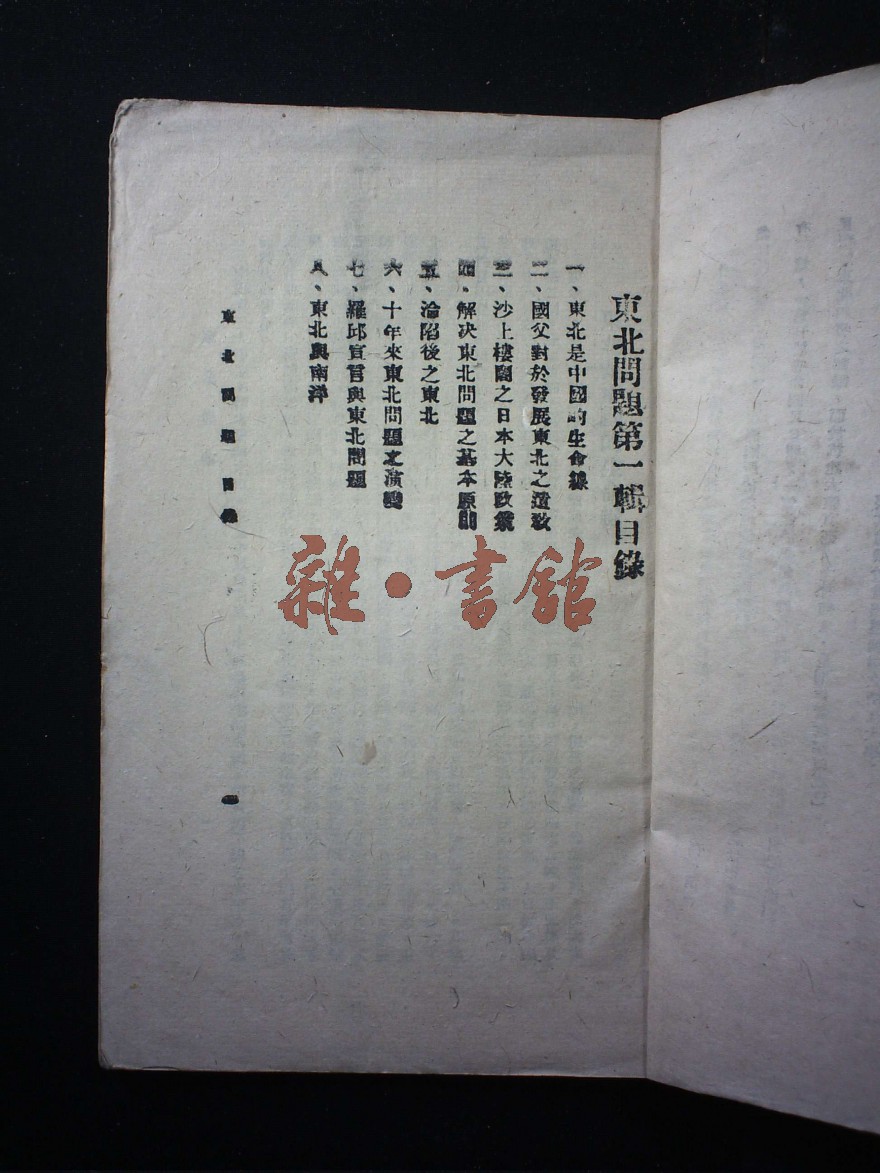 東北問題第一輯目錄
一、東北是中國的生命線
二、國父對於發展東北之遺敎
三、沙上樓閣之日本大陸政策
四、解決東北問題之基本原則
五、淪陷後之東北
六、十年來東北問題之演變
七、羅邱宣言與東北問題
八、東北與南洋
東北問題目錄
一
雜·書館